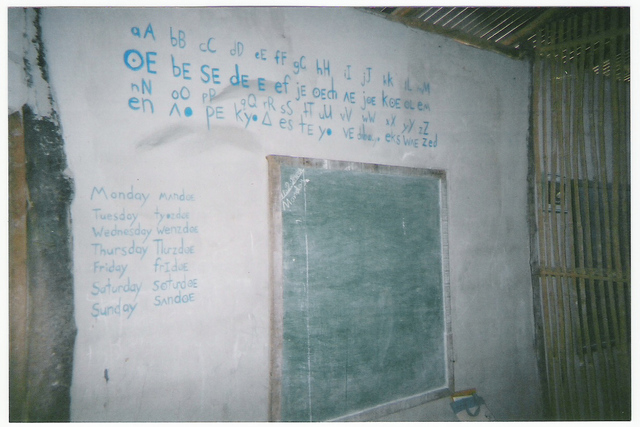 aA bB cC dD eE fF gG hH iI jJ kK lL mM
ʘE bE SE de E ef je OEch ΛE jOE KOE OL em
nN oO pP qQ rR sS tT uU vV wW xX yY zZ
en Λ● pE Ky●Δ es TE y● VE eks WAE zed
Monday MΛNdOE
Tuesday tyuzdOE
Wednesday WenzdOE
Thursday TΛrzdOE
Friday frIdOE
Saturday SaturdOE
Sunday SΛNdOE